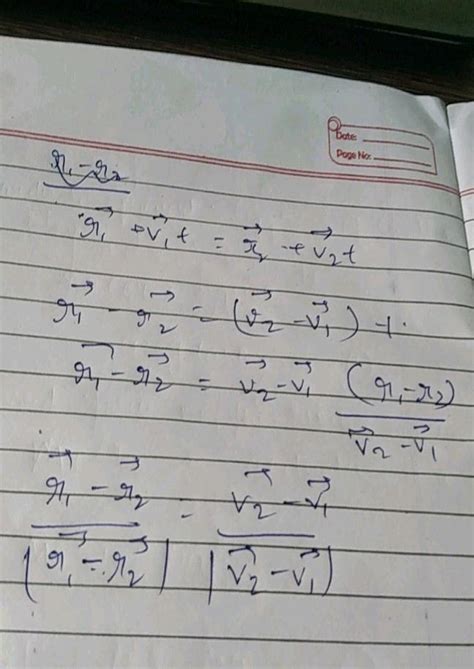 Date:
Page No:
r₁ - r₂
r⃗₁ + v⃗₁t = r⃗₂ + v⃗₂t
r⃗₁ - r⃗₂ = (v⃗₂ - v⃗₁) t.
r⃗₁ - r⃗₂ = v⃗₂ - v⃗₁ (r₁ - r₂) / (v⃗₂ - v⃗₁)
(r⃗₁ - r⃗₂) / |r⃗₁ - r⃗₂| = (v⃗₂ - v⃗₁) / |v⃗₂ - v⃗₁|